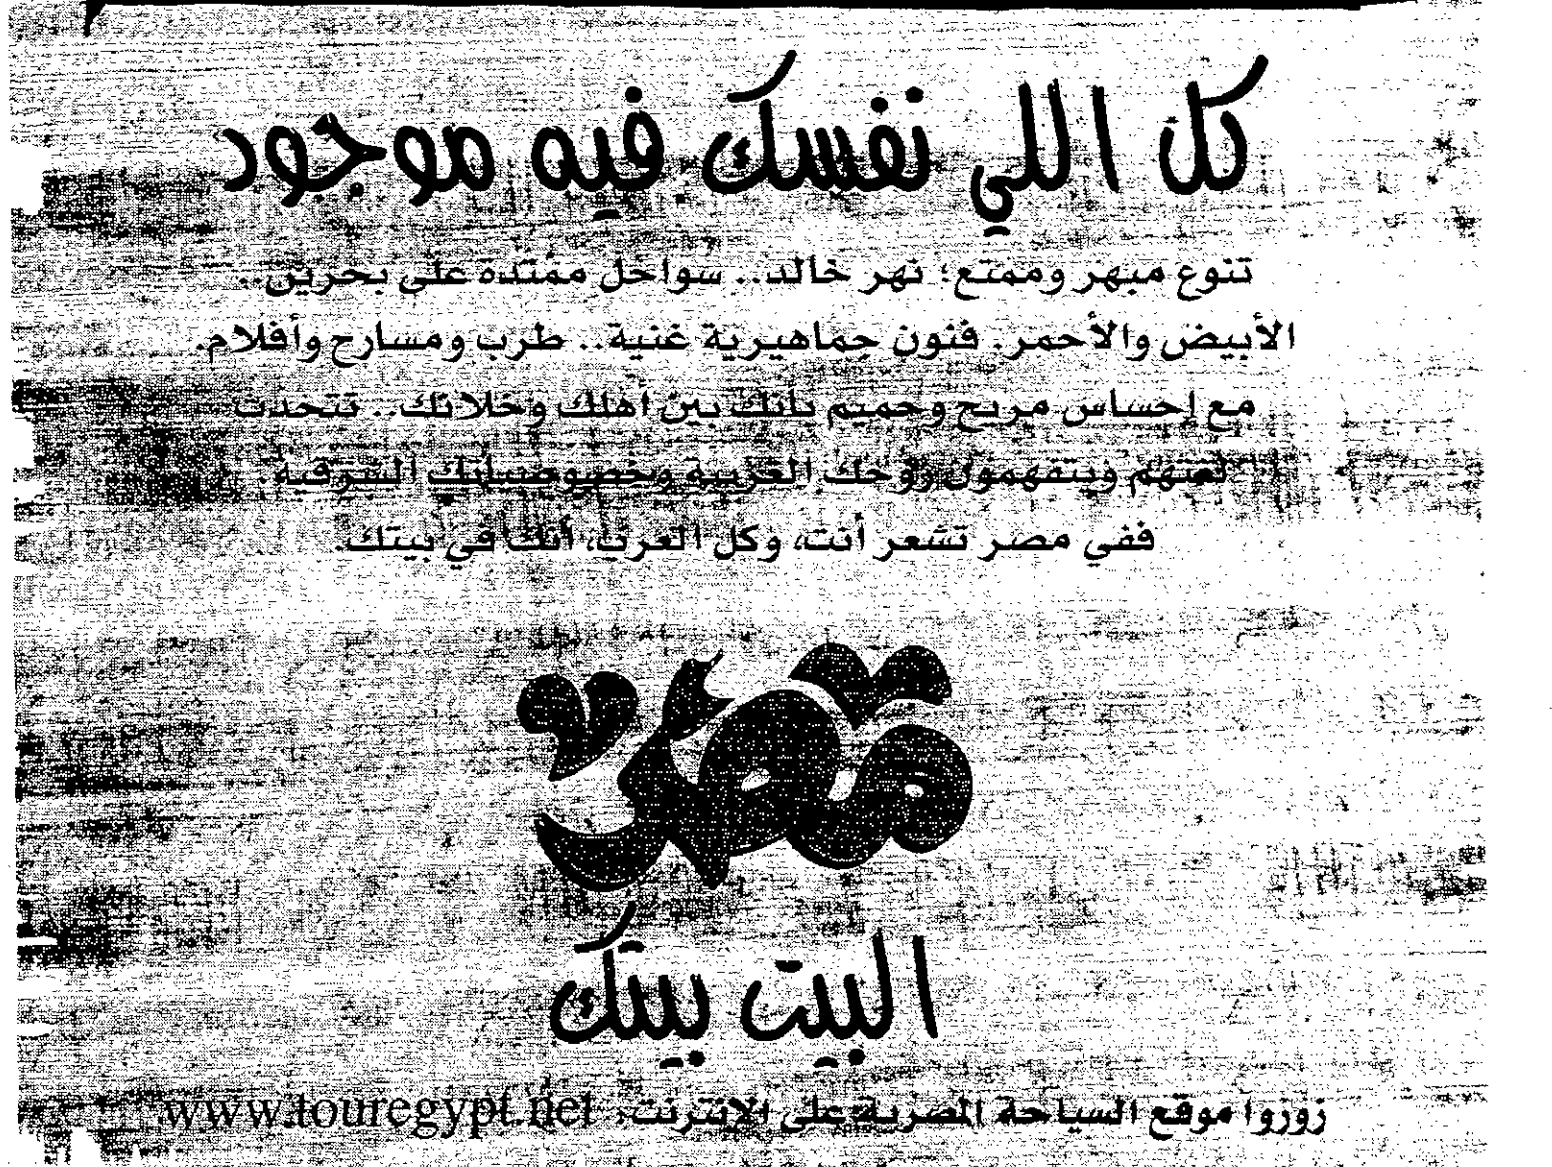 كل اللي نفسك فيه موجود
تنوع مبهر وممتع؛ نهر خالد.. سواحل ممتدة على بحرين..
الأبيض والأحمر. فنون جماهيرية غنية.. طرب ومسارح وأفلام.
مع إحساس مريح وحميم بأنك بين أهلك وخلانك.. تتحدث
لغتهم ويتفهمون روحك العربية وخصوصياتك الشرقية.
ففي مصر تشعر أنت، وكل العرب، أنك في بيتك.
مصر
البيت بيتك
زوروا موقع السياحة المصرية على الانترنت: www.touregypt.net